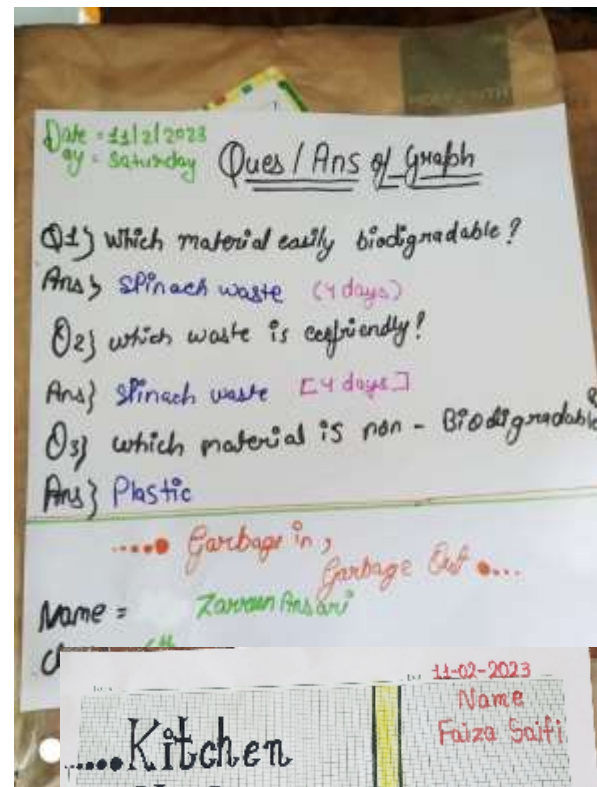 Date = 11/2/2023
ay = Saturday
Ques / Ans of Graph
Q1} Which material easily biodigradable?
Ans} Spinach waste (4 days)
Q2} which waste is ecofriendly?
Ans} Spinach waste [4 days]
Q3} which material is non - Biodigradable
Ans} Plastic
Garbage in,
Garbage Out
Name = Ansari
11-02-2023
Name
Faiza Saifi
.....Kitchen